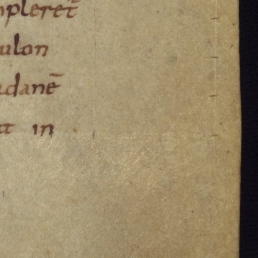 pleret̄
ulon
danē
in